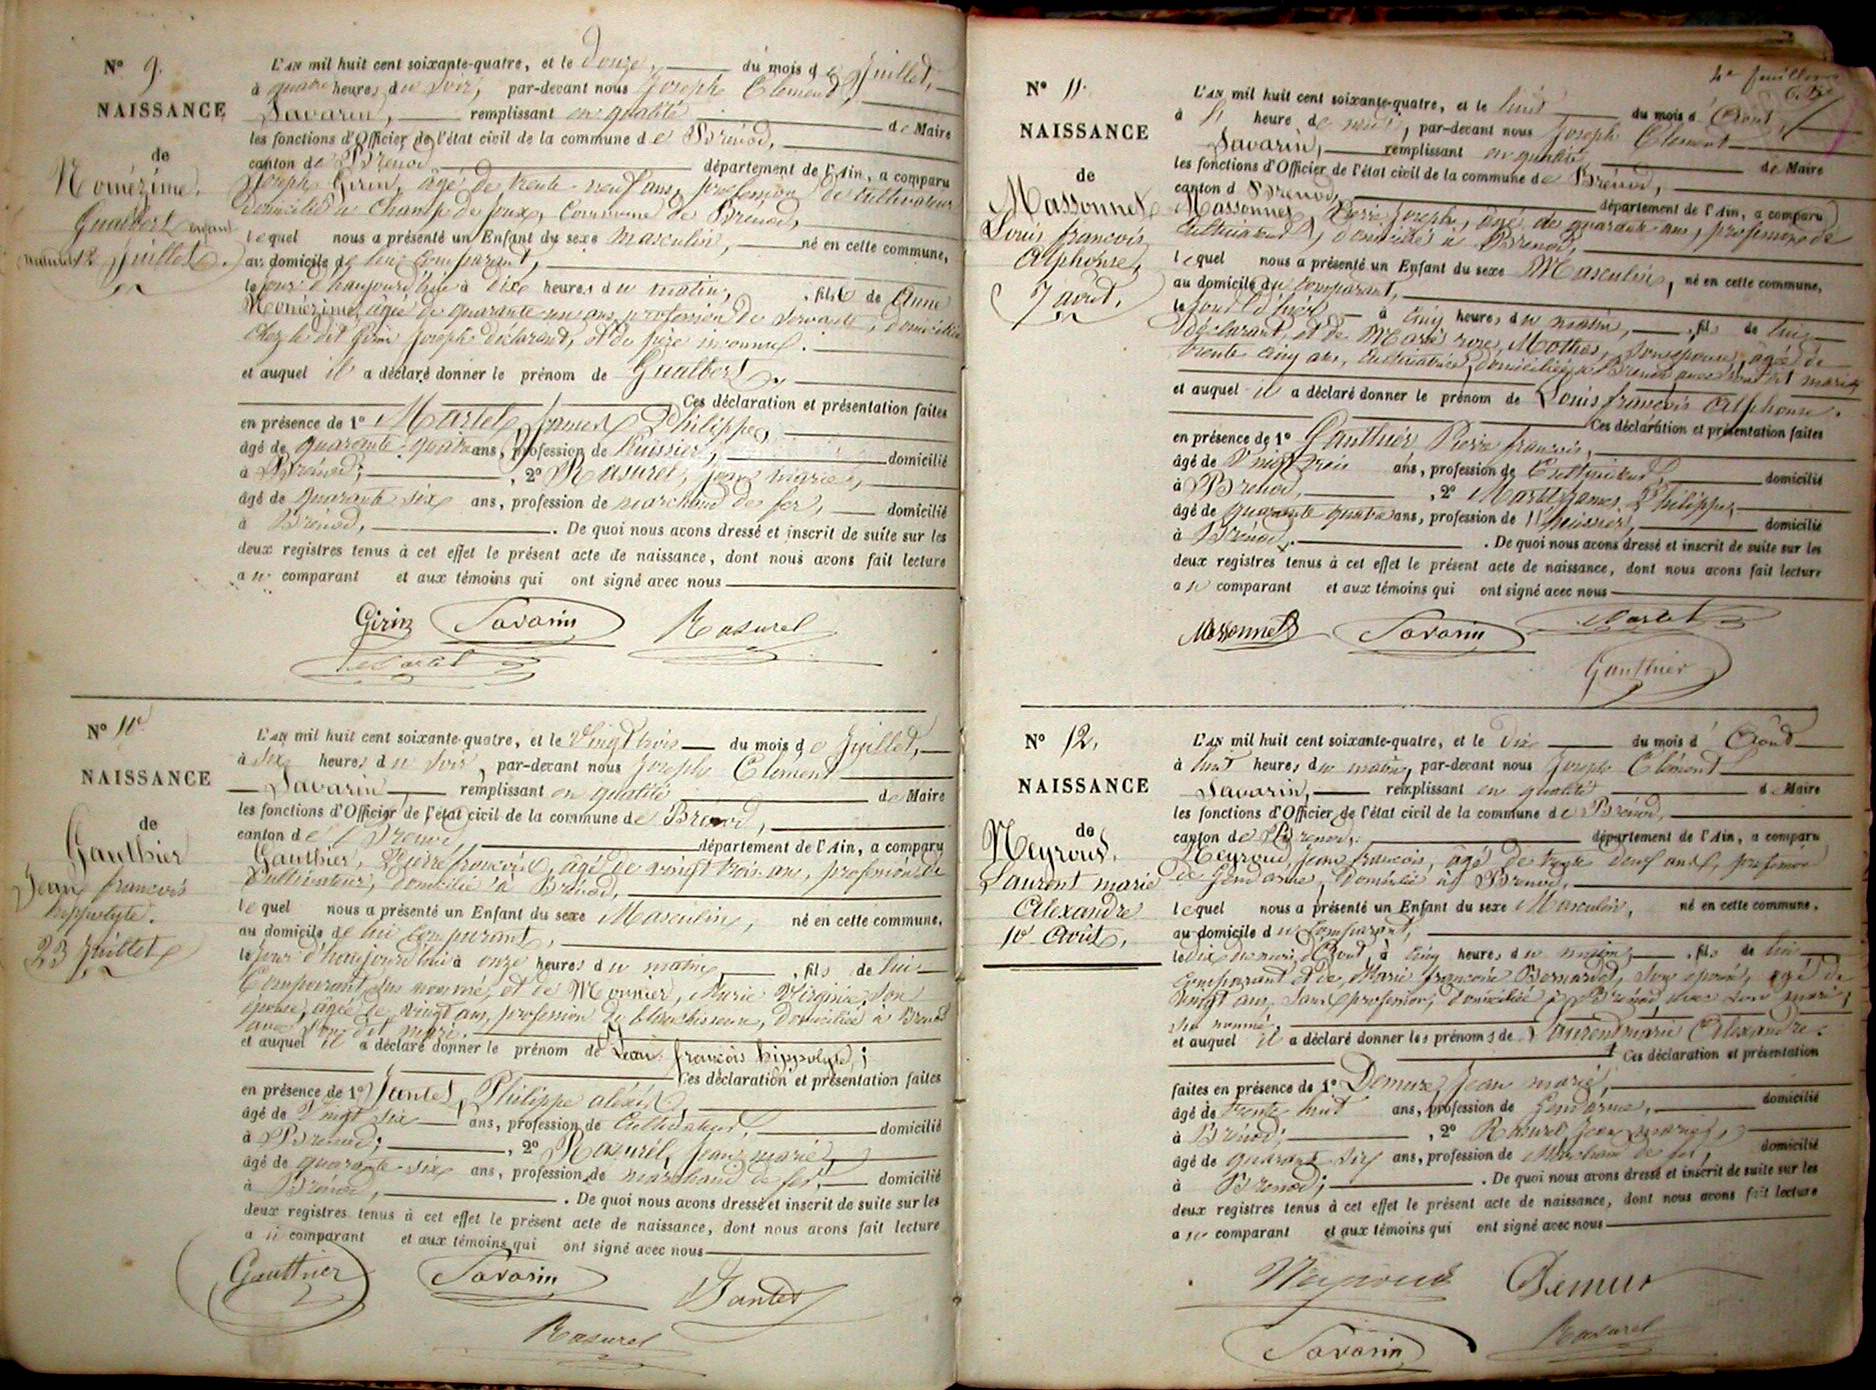 N° 9.
NAISSANCE
de
Nomézime.
Gualbert enfant
naturel 12 Juillet.
L'AN mil huit cent soixante-quatre, et le douze, du mois de Juillet,
à quatre heures du soir, par-devant nous Joseph Clement
Savarin, remplissant en qualité de Maire
les fonctions d'Officier de l'état civil de la commune de Brénod,
canton de Brenod département de l'Ain, a comparu
Joseph Girin, âgé de trente-neuf ans, profession de cultivateur
domicilié à Champ de Joux, Commune de Brénod,
lequel nous a présenté un Enfant du sexe masculin, né en cette commune,
au domicile de lui comparant,
le jour d'haujourd'hui à dix heures du matin, fils de Anne
Nomézime, âgée de quarante un ans, profession de servante, domiciliée
chez le dit Girin Joseph déclarant, et de père inconnu.
et auquel il a déclaré donner le prénom de Gualbert
Ces déclaration et présentation faites
en présence de 1° Martel James Philippe,
âgé de quarante-quatre ans, profession de huissier, domicilié
à Brénod; , 2° Rasurel, jean marie,
âgé de quarante six ans, profession de marchand de fer, domicilié
à Brénod, . De quoi nous avons dressé et inscrit de suite sur les
deux registres tenus à cet effet le présent acte de naissance, dont nous avons fait lecture
au comparant et aux témoins qui ont signé avec nous
Girin Savarin Rasurel
Martel
N° 10
NAISSANCE
de
Gauthier
Jean francois
hyppolyte.
23 Juillet
L'AN mil huit cent soixante-quatre, et le Vingt trois du mois de Juillet,
à six heures du soir, par-devant nous Joseph Clément
Savarin remplissant en qualité de Maire
les fonctions d'Officier de l'état civil de la commune de Brénod,
canton de Brenod, département de l'Ain, a comparu
Gauthier, Pierre francois, âgé de vingt trois ans, profession de
Cultivateur, domicilié à Brénod,
lequel nous a présenté un Enfant du sexe Masculin, né en cette commune,
au domicile de lui comparant,
le jour d'haujourd'hui à onze heures du matin, fils de lui
Comparant sus nommé, et de Monnier, Marie Virginie, son
épouse, âgée de vingt ans, profession de blanchisseuse, domiciliée à Brenod
avec son dit mari.
et auquel il a déclaré donner le prénom de Jean françois hippolyte;
Ces déclaration et présentation faites
en présence de 1° Jantet, Philippe aléxis
âgé de Vingt six ans, profession de Cultivateur, domicilié
à Brenod; , 2° Rasurel, Jean marie
âgé de quarante-six ans, profession de marchand de fer, domicilié
à Brénod, . De quoi nous avons dressé et inscrit de suite sur les
deux registres tenus à cet effet le présent acte de naissance, dont nous avons fait lecture
au comparant et aux témoins qui ont signé avec nous
Gauthier Savarin Jantet
Rasurel
N° 11.
NAISSANCE
de
Massonnet
Louis francois
Alphonse,
7 août,
L'AN mil huit cent soixante-quatre, et le huit du mois d'Août,
à heure de , par-devant nous Joseph Clement
Savarin, remplissant en qualité de Maire
les fonctions d'Officier de l'état civil de la commune de Brénod,
canton d Brenod, département de l'Ain, a comparu
Massonnet, Joseph, âgé de quarante ans, profession de
cultivateur, domicilié à Brénod,
lequel nous a présenté un Enfant du sexe Masculin, né en cette commune,
au domicile du comparant,
le jour d'hier à cinq heures du matin, fils de lui
déclarant, et de Marie rose Mathes, son épouse, âgée de
trente cinq ans, cultivatrice, domiciliée à Brénod avec son dit mari
et auquel il a déclaré donner le prénom de Louis francois Alphonse.
Ces déclaration et présentation faites
en présence de 1° Gauthier Pierre francois,
âgé de Vingt trois ans, profession de Cultivateur, domicilié
à Brenod, , 2° Martel James Philippe,
âgé de quarante quatre ans, profession de huissier, domicilié
à Brénod. . De quoi nous avons dressé et inscrit de suite sur les
deux registres tenus à cet effet le présent acte de naissance, dont nous avons fait lecture
au comparant et aux témoins qui ont signé avec nous
Massonnet Savarin Martel
Gauthier
N° 12.
NAISSANCE
de
Neyroud.
Laurent marie
Alexandre
10 Août,
L'AN mil huit cent soixante-quatre, et le Dix du mois d'Août
à huit heures du matin, par-devant nous Joseph Clément
Savarin, remplissant en qualité de Maire
les fonctions d'Officier de l'état civil de la commune de Brénod,
canton de Brenod, département de l'Ain, a comparu
Neyroud, Jean francois, âgé de trente neuf ans, profession
de Gendarme, domicilié à Brenod,
lequel nous a présenté un Enfant du sexe Masculin, né en cette commune,
au domicile du comparant,
le dix Août, à cinq heures du matin, fils de lui
comparant et de Marie francoise Bernard, son épouse, agé de
vingt ans, sans profession, domiciliée à Brénod avec son mari,
sus nommé.
et auquel il a déclaré donner les prénoms de Laurent marie Alexandre.
Ces déclaration et présentation
faites en présence de 1° Demure Jean marie,
âgé de trente huit ans, profession de Gendarme, domicilié
à Brénod; , 2° Rasurel Jean marie,
âgé de quarante six ans, profession de Marchand de fer, domicilié
à Brenod; . De quoi nous avons dressé et inscrit de suite sur les
deux registres tenus à cet effet le présent acte de naissance, dont nous avons fait lecture
au comparant et aux témoins qui ont signé avec nous
Neyroud Demur
Savarin Rasurel